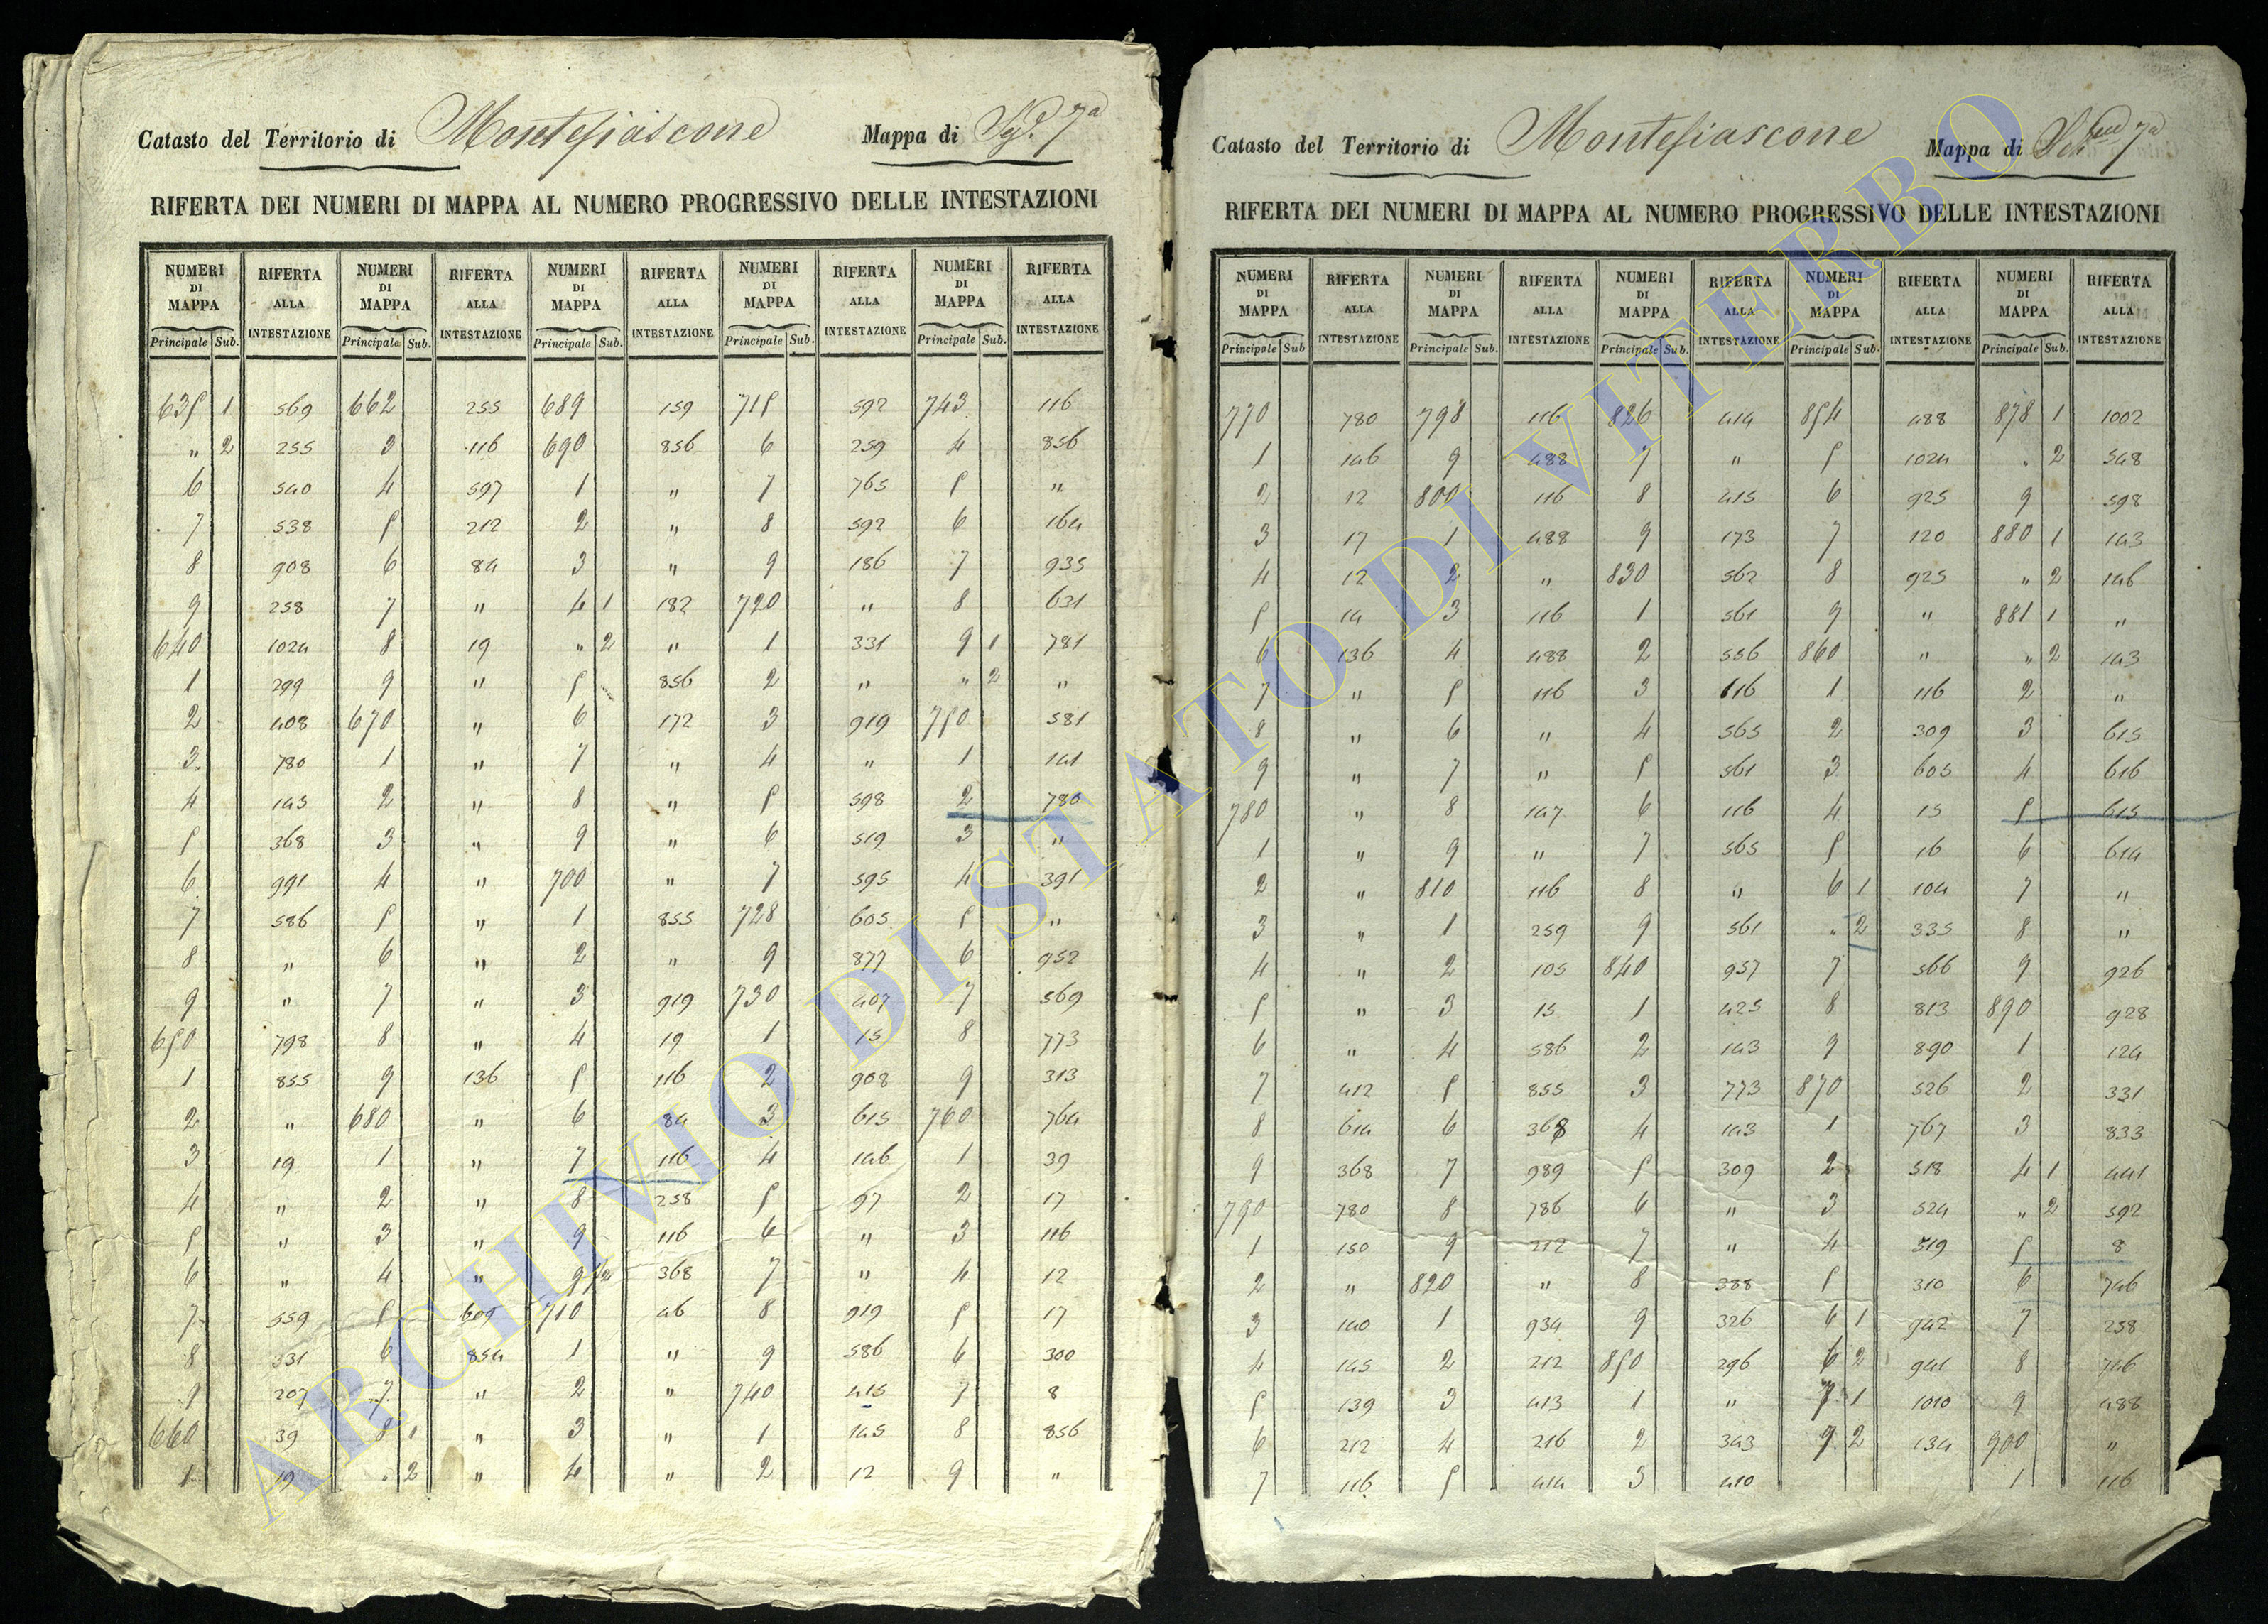 Catasto del Territorio di Montefiascone Mappa di Sez.e 7a
RIFERTA DEI NUMERI DI MAPPA AL NUMERO PROGRESSIVO DELLE INTESTAZIONI
NUMERI DI MAPPA RIFERTA ALLA INTESTAZIONE NUMERI DI MAPPA RIFERTA ALLA INTESTAZIONE NUMERI DI MAPPA RIFERTA ALLA INTESTAZIONE NUMERI DI MAPPA RIFERTA ALLA INTESTAZIONE NUMERI DI MAPPA RIFERTA ALLA INTESTAZIONE
Principale Sub. Principale Sub. Principale Sub. Principale Sub. Principale Sub.
635 1 569 662 255 689 159 715 592 743 116
" 2 255 3 116 690 856 6 259 4 856
6 540 4 597 1 " 7 765 5 "
7 538 5 212 2 " 8 592 6 164
8 908 6 84 3 " 9 186 7 935
9 258 7 " 4 1 182 720 " 8 631
640 1024 8 19 " 2 " 1 331 9 1 781
1 299 9 " 5 856 2 " " 2 "
2 408 670 " 6 172 3 919 750 581
3 780 1 " 7 " 4 " 1 141
4 145 2 " 8 " 5 598 2 780
5 368 3 " 9 " 6 519 3 "
6 991 4 " 700 " 7 595 4 391
7 586 5 " 1 855 728 605 5 "
8 " 6 " 2 " 9 877 6 952
9 " 7 " 3 919 730 407 7 569
650 798 8 " 4 19 1 15 8 773
1 855 9 136 5 116 2 908 9 313
2 " 680 " 6 84 3 615 760 764
3 19 1 " 7 116 4 146 1 39
4 " 2 " 8 258 5 97 2 17
5 " 3 " 9 116 6 " 3 116
6 " 4 " 9 2 368 7 " 4 12
7 559 5 609 710 46 8 919 5 17
8 331 6 854 1 " 9 586 6 300
9 207 7 " 2 " 740 415 7 8
660 39 8 1 " 3 " 1 145 8 856
1 19 " 2 " 4 " 2 12 9 "
Catasto del Territorio di Montefiascone Mappa di 7a
RIFERTA DEI NUMERI DI MAPPA AL NUMERO PROGRESSIVO DELLE INTESTAZIONI
NUMERI DI MAPPA RIFERTA ALLA INTESTAZIONE NUMERI DI MAPPA RIFERTA ALLA INTESTAZIONE NUMERI DI MAPPA RIFERTA ALLA INTESTAZIONE NUMERI DI MAPPA RIFERTA ALLA INTESTAZIONE NUMERI DI MAPPA RIFERTA ALLA INTESTAZIONE
Principale Sub Principale Sub. Principale Sub. Principale Sub. Principale Sub.
770 780 798 116 826 414 854 488 878 1 1002
1 146 9 488 7 " 5 1024 " 2 548
2 12 800 116 8 415 6 925 9 598
3 17 1 488 9 173 7 120 880 1 143
4 12 2 " 830 562 8 925 " 2 146
5 14 3 116 1 561 9 " 881 1 "
6 136 4 488 2 556 860 " " 2 143
7 " 5 116 3 116 1 116 2 "
8 " 6 " 4 565 2 309 3 615
9 " 7 " 5 561 3 605 4 616
780 " 8 147 6 116 4 15 5 615
1 " 9 " 7 565 5 16 6 614
2 " 810 116 8 " 6 1 104 7 "
3 " 1 259 9 561 " 2 335 8 "
4 " 2 105 840 957 7 566 9 926
5 " 3 15 1 425 8 813 890 928
6 " 4 586 2 143 9 890 1 124
7 412 5 855 3 773 870 526 2 331
8 614 6 368 4 143 1 767 3 833
9 368 7 989 5 309 2 518 4 1 441
790 780 8 786 6 " 3 524 " 2 592
1 150 9 212 7 " 4 519 5 8
2 " 820 " 8 388 5 310 6 746
3 140 1 934 9 326 6 1 942 7 258
4 145 2 212 850 296 6 2 941 8 746
5 139 3 413 1 " 7 1 1010 9 488
6 212 4 216 2 343 7 2 134 900 "
7 116 5 414 3 410 1 116
ARCHIVIO DI STATO DI VITERBO